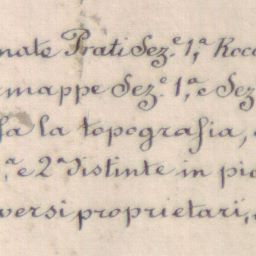 nate Prati Sez.e 1,a Rocc
rmappe Sez.e 1,a e Sez
fa la topografia,
,a e 2a distinte in pia
versi proprietari,